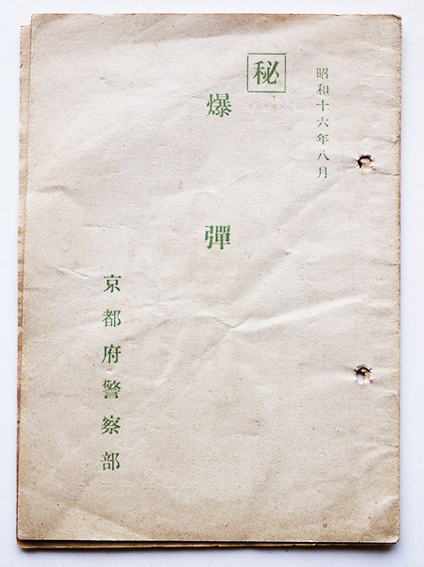 昭和十六年八月
秘
爆彈
京都府警察部